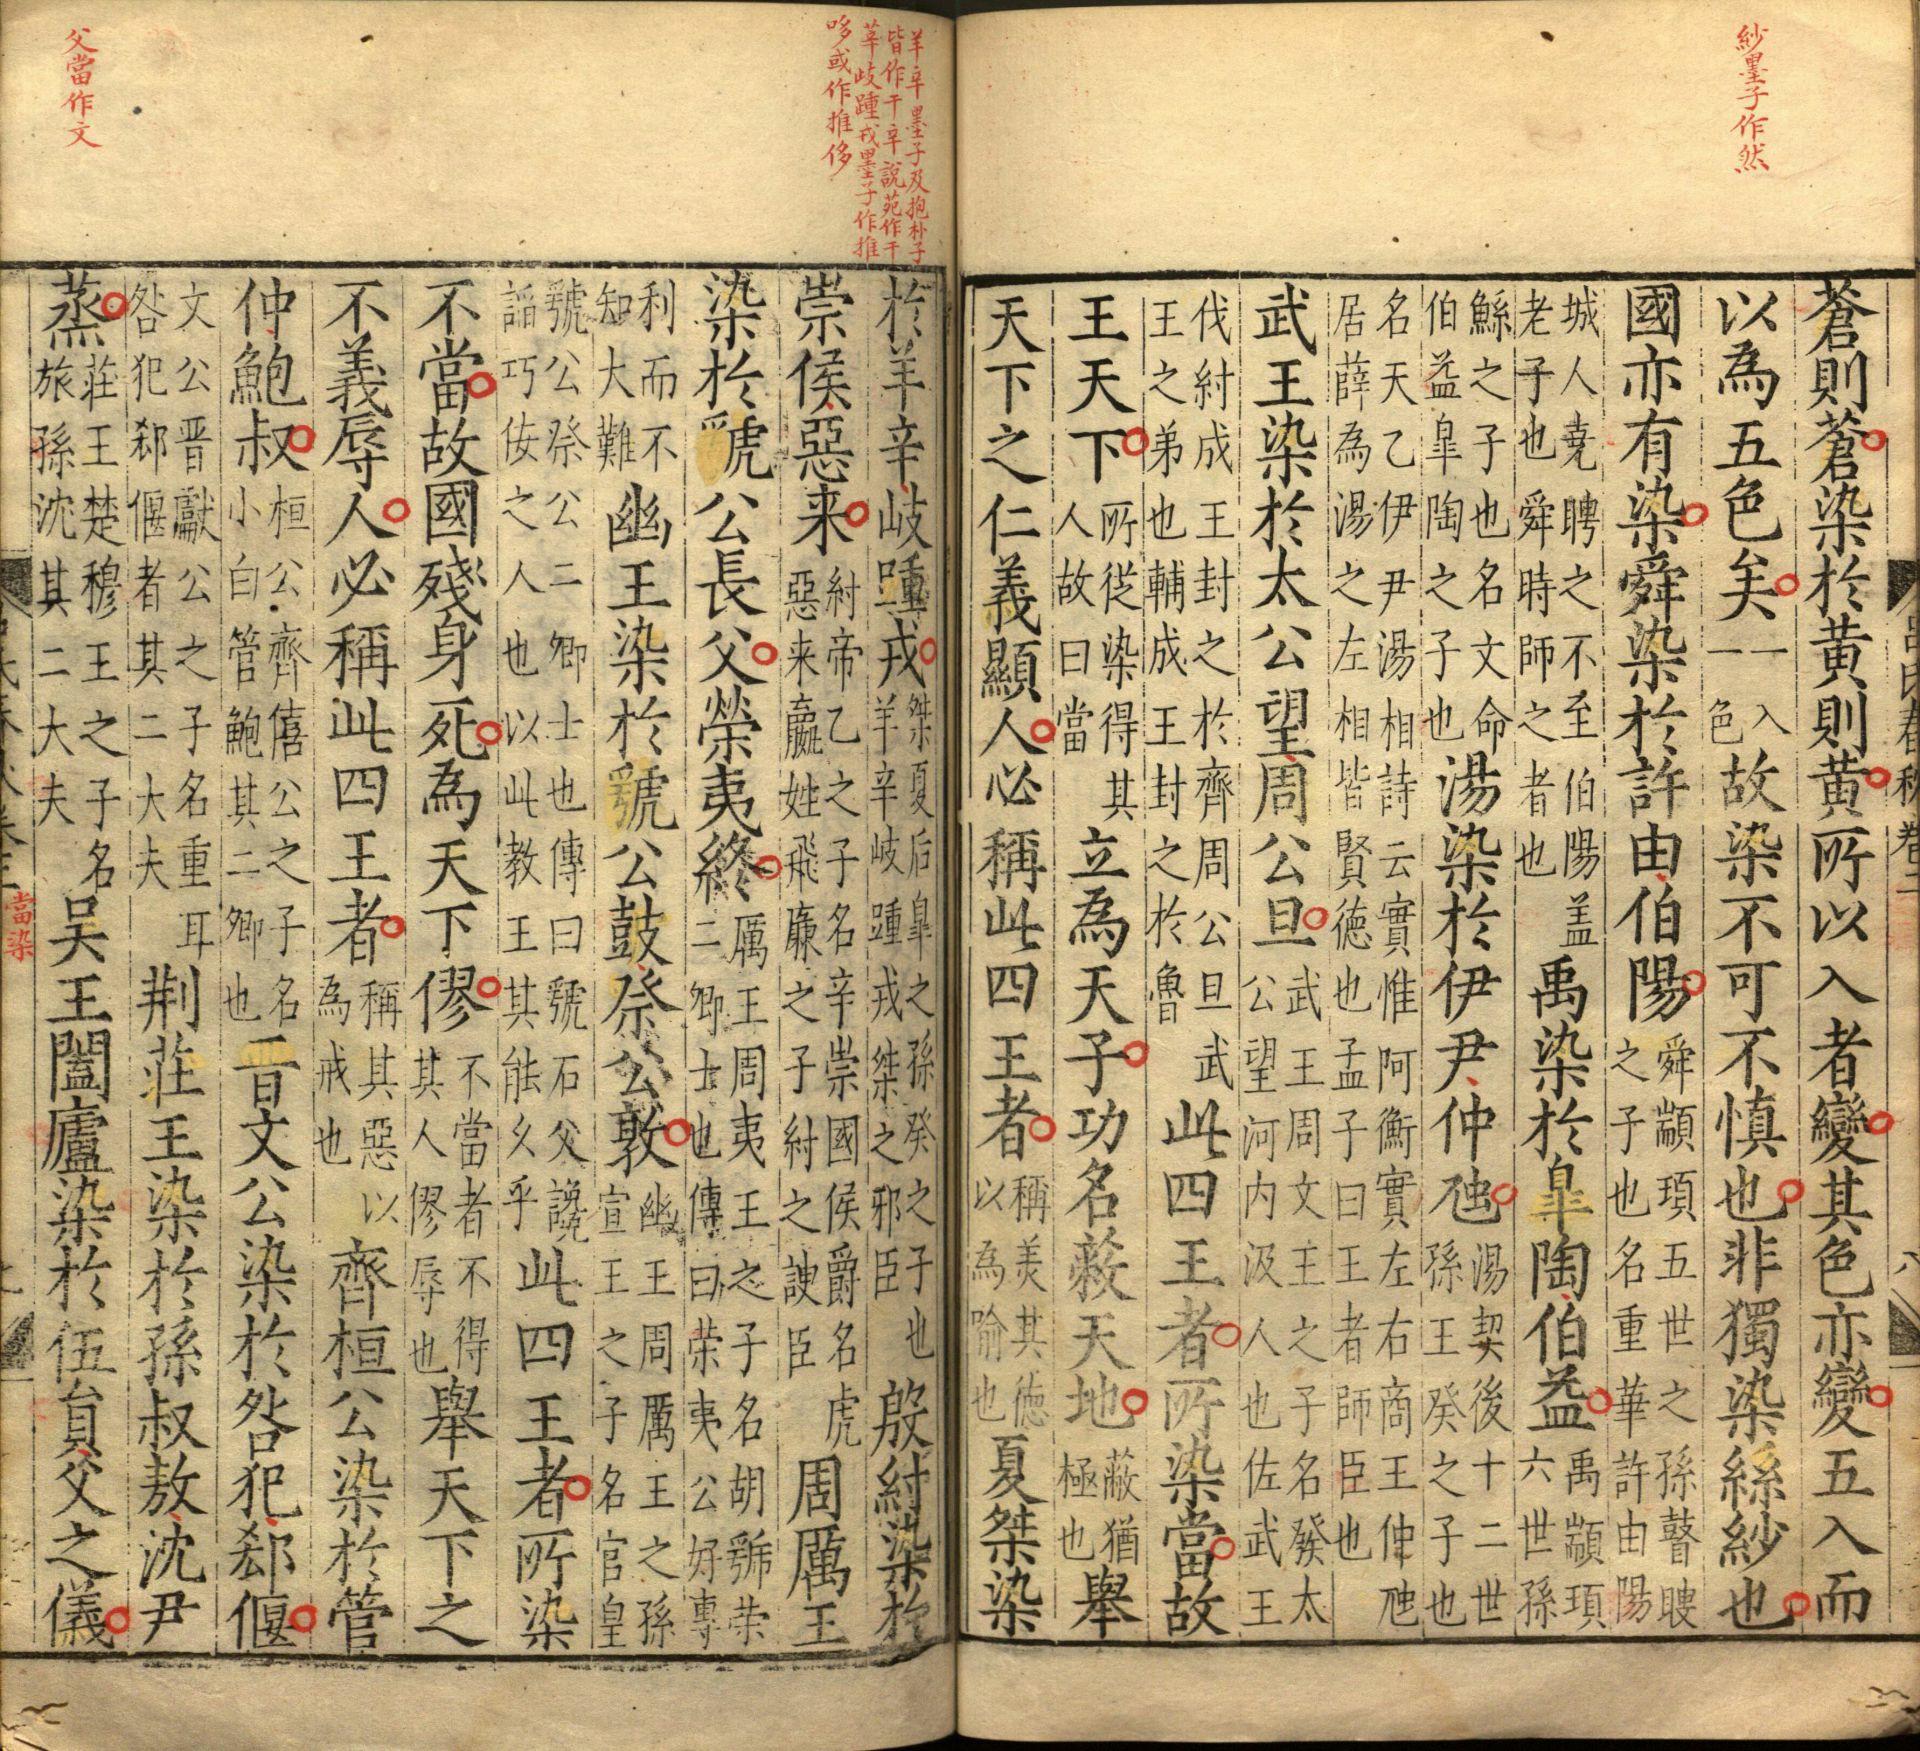 紗墨子作然
蒼則蒼染於黃則黃所以入者變其色亦變五入而
以為五色矣一入一色故染不可不慎也非獨染絲紗也
國亦有染舜染於許由伯陽舜顓頊五世之孫瞽瞍之子也名重華許由陽
城人堯聘之不至伯陽盖老子也舜時師之者也禹染於皐陶伯益禹顓頊六世孫
鯀之子也名文命伯益皐陶之子也湯染於伊尹仲虺湯契後十二世孫王癸之子也
名天乙伊尹湯相詩云實惟阿衡實左右商王仲虺居薛為湯之左相皆賢徳也孟子曰王者師臣也
武王染於太公望周公旦武王周文王之子名發太公望河内汲人也佐武王
伐紂成王封之於齊周公旦武王之弟也輔成王封之於魯此四王者所染當故
王天下所従染得其人故曰當立為天子功名蔽天地蔽猶極也舉
天下之仁義顯人必稱此四王者稱美其徳以為喻也夏桀染
羊辛墨子及抱朴子
皆作干辛說苑作干
莘岐踵戎墨子作推
哆或作推侈
於羊辛岐踵戎桀夏后皐之孫癸之子也羊辛岐踵戎桀之邪臣殷紂染於
崇侯惡来紂帝乙之子名辛崇國侯爵名虎惡来嬴姓飛廉之子紂之諛臣周厲王
染於虢公長父榮夷終厲王周夷王之子名胡虢荣二卿士也傳曰荣夷公好專
利而不知大難幽王染於虢公鼓祭公敦幽王周厲王之孫宣王之子名官皇
虢公祭公二卿士也傳曰虢石父讒謟巧佞之人也以此教王其能久乎此四王者所染
不當故國殘身死為天下僇不當者不得其人僇辱也舉天下之
不義辱人必稱此四王者稱其惡以為戒也齊桓公染於管
仲鮑叔桓公齊僖公之子名小白管鮑其二卿也晋文公染於咎犯郄偃
文公晋獻公之子名重耳咎犯郄偃者其二大夫荆莊王染於孫叔敖沈尹
父當作文
蒸莊王楚穆王之子名旅孫沈其二大夫吴王闔廬染於伍員父之儀
當染